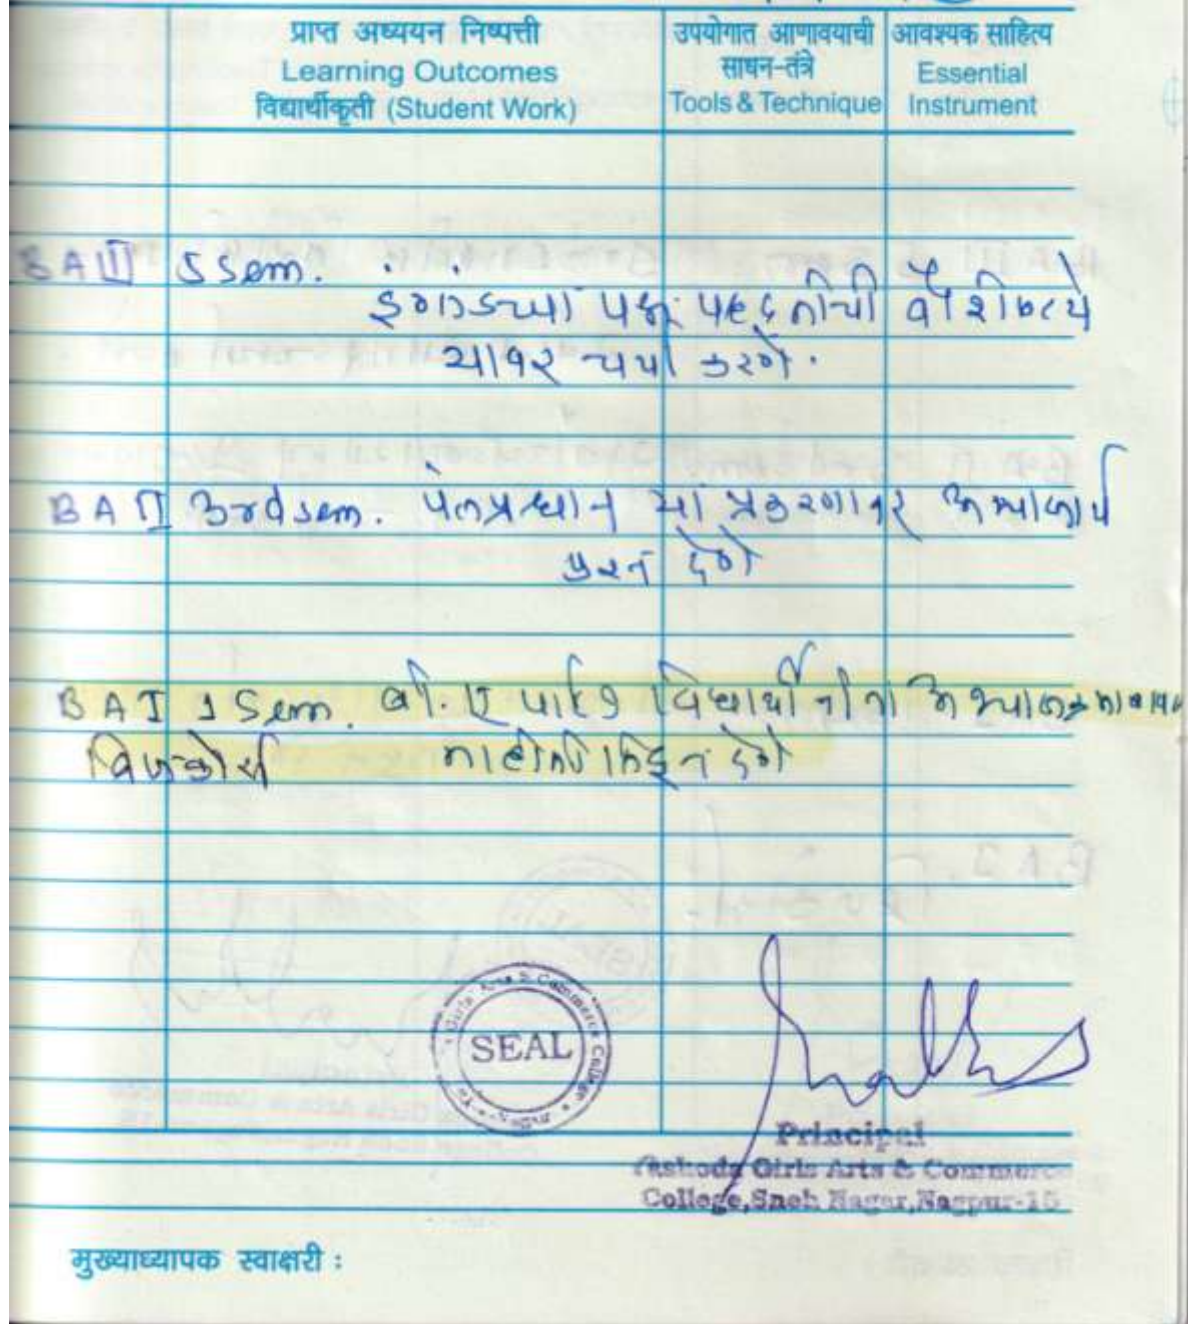 प्राप्त अध्ययन निष्पत्ती
Learning Outcomes
विद्यार्थीकृती (Student Work)
उपयोगात आणावयाची
साधन-तंत्रे
Tools & Technique
आवश्यक साहित्य
Essential
Instrument
BA III 5 Sem.
इंग्लंडच्या पक्ष पध्दतीची वैशीष्टये
यावर चर्चा करणे.
BA II 3rd sem. पंतप्रधान या प्रकरणावर
प्रश्न देणे
BA I 1 Sem. बी. ए पार्ट 1 विद्यार्थीनींना
माहीती लिहून देणे
Girls Arts & Commerce College
SEAL
Principal
Yashoda Girls Arts & Commerce
College, Sneh Nagar, Nagpur-15
मुख्याध्यापक स्वाक्षरी :